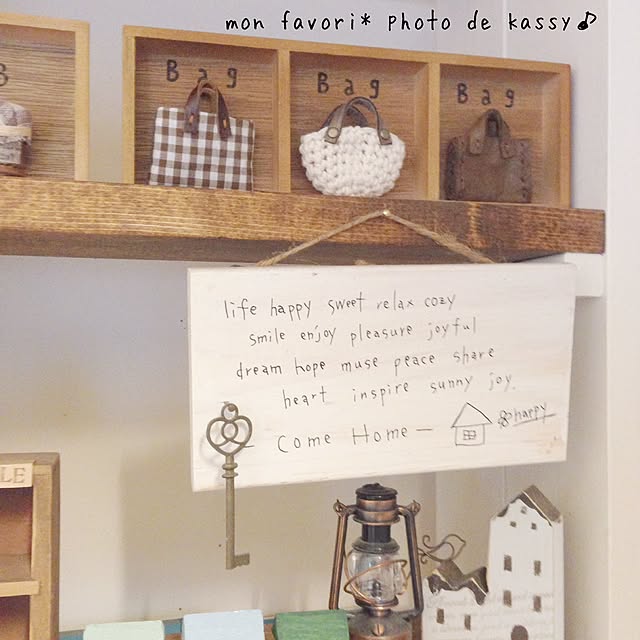 mon favori* photo de kassy♪
Bag Bag Bag
life happy sweet relax cozy
smile enjoy pleasure joyful
dream hope muse peace share
heart inspire sunny joy.
Come Home — happy
LE